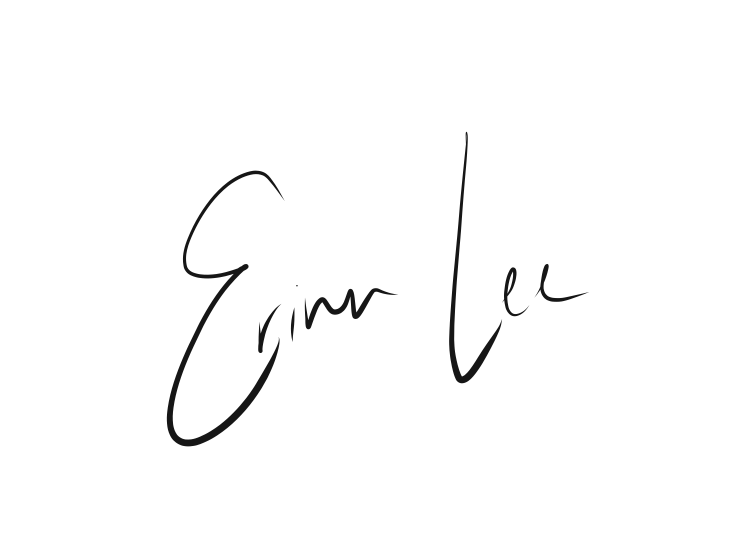 Erinn Lee